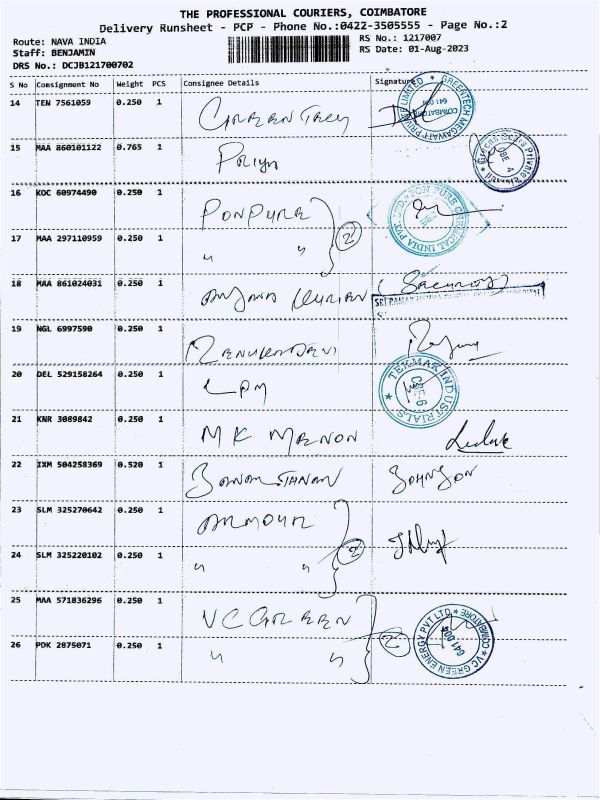 THE PROFESSIONAL COURIERS, COIMBATORE
Delivery Runsheet - PCP - Phone No.:0422-3505555 - Page No.:2
Route: NAVA INDIA RS No.: 1217007
Staff: BENJAMIN RS Date: 01-Aug-2023
DRS No.: DCJB121700702
S No Consignment No Weight PCS Consignee Details Signature
14 TEN 7561059 0.250 1
GREENTECH MEGAWATT PRIVATE LIMITED COIMBATORE 641 004
15 MAA 860101122 0.765 1 Priya
Private
16 KOC 60974490 0.250 1 PONPURE
PON PURE CHEMICAL INDIA PVT. LTD.
17 MAA 297110959 0.250 1 " " 2
18 MAA 861024031 0.250 1 KURIAN
19 NGL 6997590 0.250 1 RENUKADEVI
20 DEL 529158264 0.250 1 LPM
TEXMAK INDUSTRIALS CBE-6
21 KNR 3089842 0.250 1 M K MENON
22 IXM 504258369 0.520 1 JOHNSON
23 SLM 325270642 0.250 1 ARMOUR
24 SLM 325220102 0.250 1 " " 2
25 MAA 571836296 0.250 1 VC GREEN
26 PDK 2875071 0.250 1 " " 2
VC GREEN ENERGY PVT LTD COIMBATORE 641 004